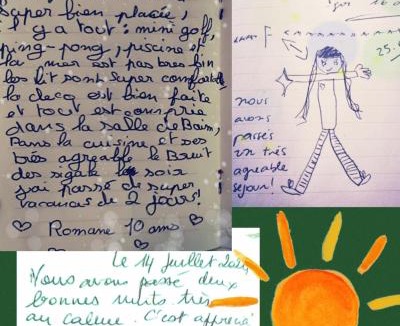 super bien placée,
il y a tout : mini golf,
ping-pong, piscine et
la mer est pas très loin
les lit sont super comfortable
la deco est bien faite
et tout est comprie
dans la salle de Bain,
Dans la cuisine et ses
très agréable le Bruit
des sigale le soir
j'ai passé de super
vacances de 2 jours!
Romane 10 ans
nous
avons
passés
un très
agreable
sejour!
25.
Le 14 Juillet 2024
Nous avons passé deux
bonnes nuits très
au calme. C'est apprécié